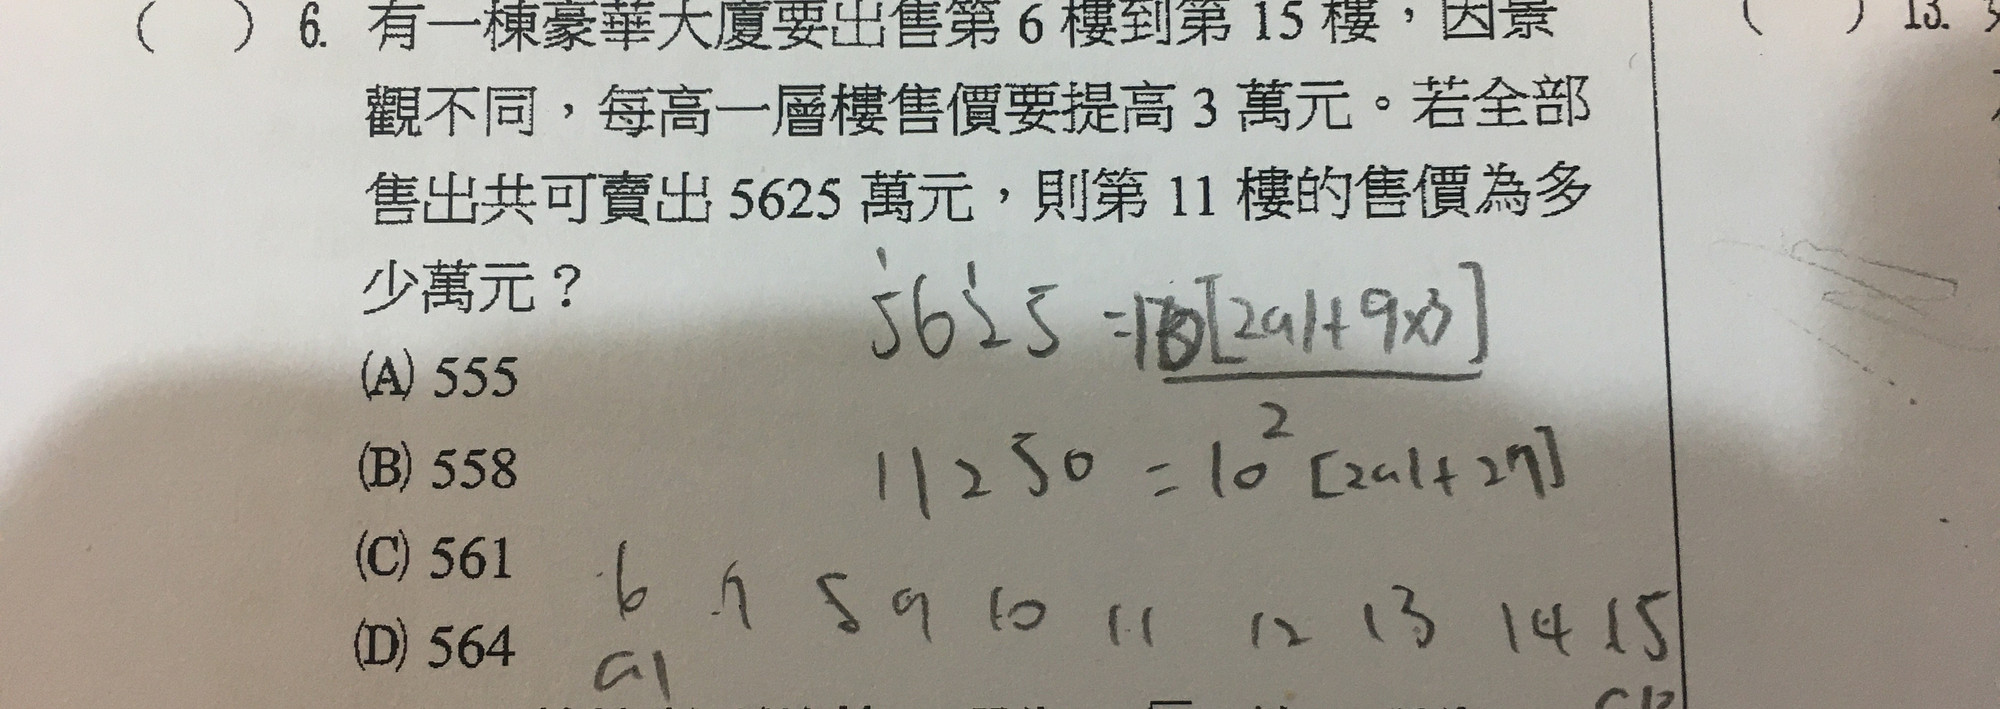 ( ) 6. 有一棟豪華大廈要出售第 6 樓到第 15 樓，因景
觀不同，每高一層樓售價要提高 3 萬元。若全部
售出共可賣出 5625 萬元，則第 11 樓的售價為多
少萬元？
(A) 555
(B) 558
(C) 561
(D) 564
5625 = 10[2a1+9×3]
2
11250 = 10 [2a1+27]
6 7 8 9 10 11 12 13 14 15
a1
( ) 13.